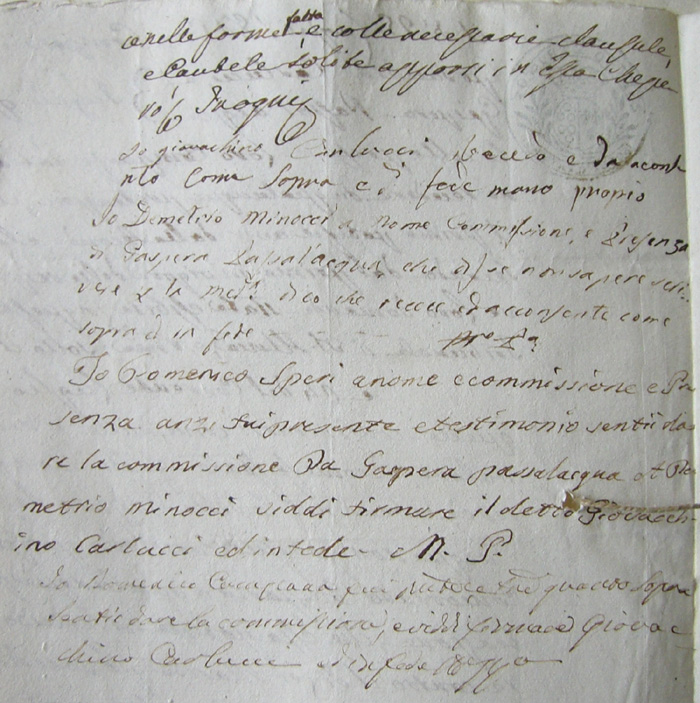 e nelle forme fatta e colle necessarie clausule
e Caubele solite apporsi in Essa Chepe
rò
Io giovachino Carlucci e da acont
nto Come Sopra e in fede mano proprio
Io Demetrio Minocci a nome Commissione, e Presenza
di Gaspera Passalacqua, che disse non sapere scri
vere dico che riceve ed acconsente come
sopra in fede
Io Domenico Speri a nome e commissione e Pre
senza anzi fui presente e testimonio sentii da
re la commissione Da Gaspera passalacqua a De
metrio minocci viddi firmare il detto Giovacch
ino Carlucci ed in fede M. P.
Io Domenico fui quanto Sopra
sentii dare la commissione, e viddi firmare Giovac
chino Carlucci ed in fede